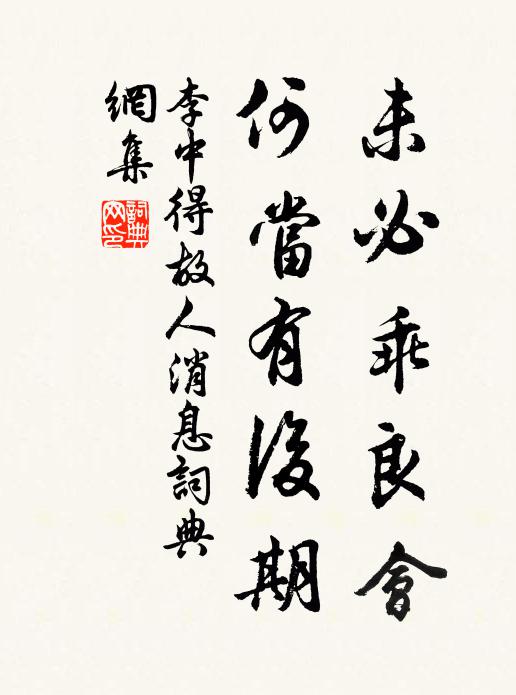 未必乖良會
何當有後期
李中得故人消息詞典
網集
詞典
网印